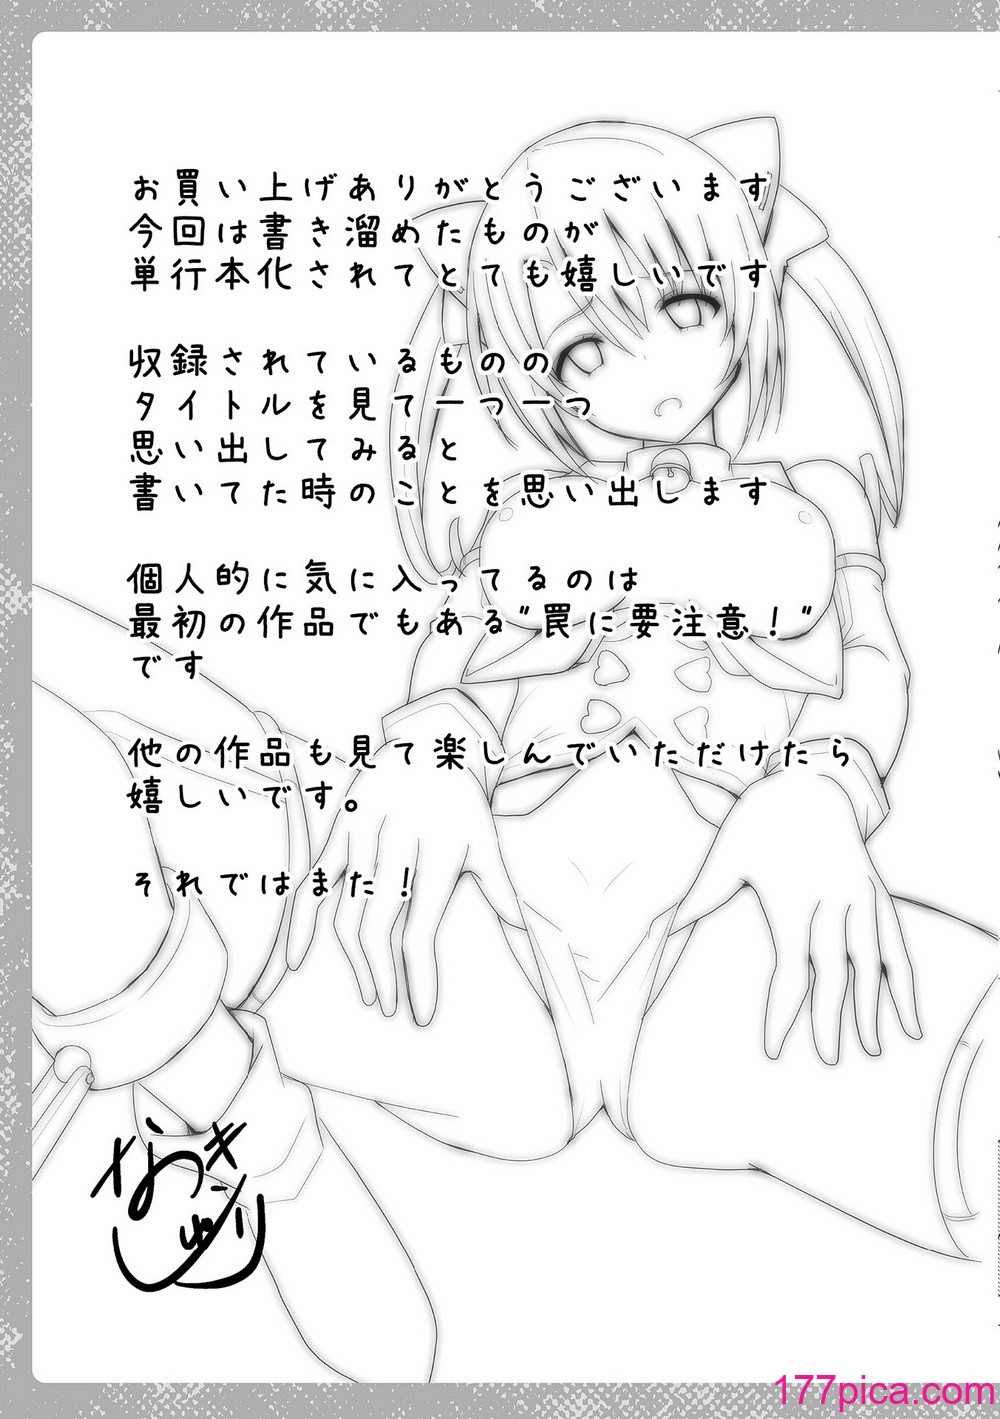 お買い上げありがとうございます
今回は書き溜めたものが
単行本化されてとても嬉しいです
収録されているものの
タイトルを見て一つ一つ
思い出してみると
書いてた時のことを思い出します
個人的に気に入ってるのは
最初の作品でもある"罠に要注意！"
です
他の作品も見て楽しんでいただけたら
嬉しいです。
それではまた！
177pica.com